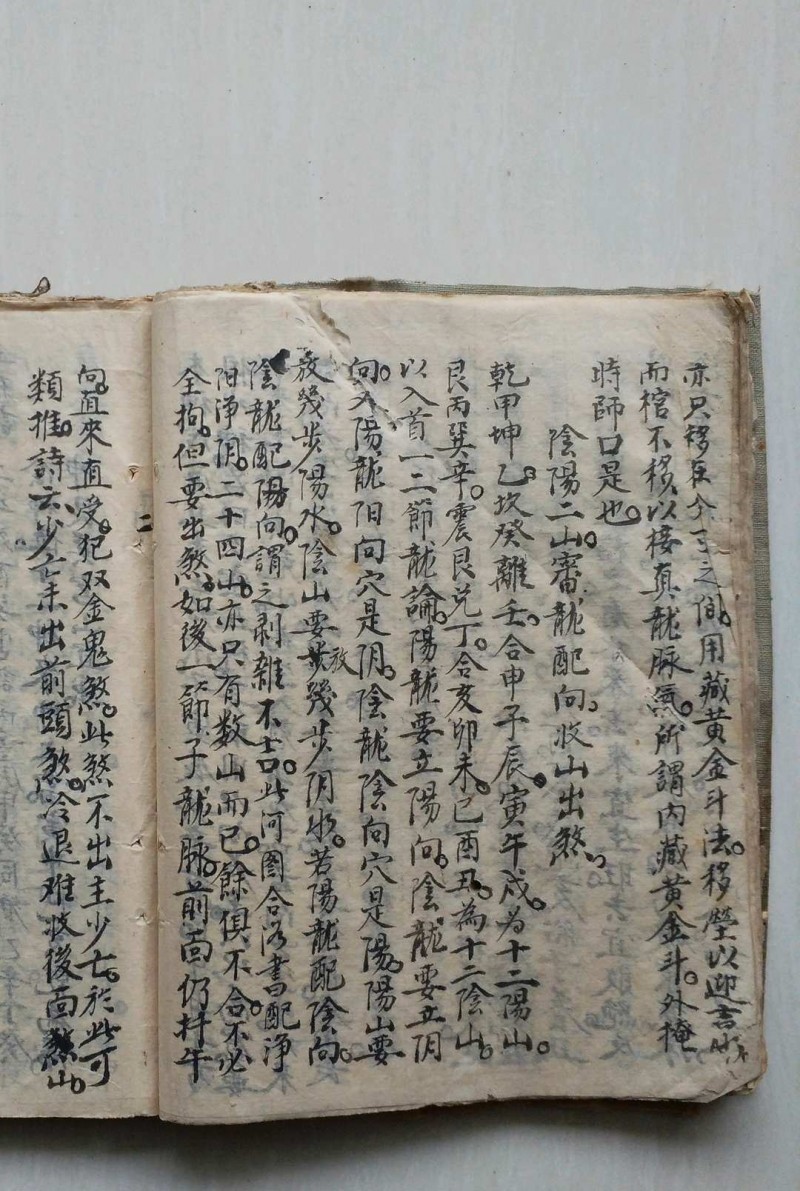 亦只移在分下之间。用藏黄金斗法。移塋以迎吉水
而棺不移。以接真龍脉氣。所謂内藏黄金斗。外掩
時師口是也。
陰陽二山。審龍配向。收山出煞。
乾甲坤乙。坎癸離壬。合申子辰。寅午戌。为十二陽山。
艮丙巽辛。震艮兑丁。合亥卯未。巳酉丑。為十二陰山。
以入首一二節龍論。陽龍要立陽向。陰龍要立阴
向。陽龍阳向穴是阴。陰龍陰向穴是陽。陽山要
放幾步陽水。陰山要放幾步阴水。若陽龍配陰向。
陰龍配陽向。謂之剥雜不吉。此河圖合洛書。配净
阳净阴。二十四山。亦只有数山而已。餘俱不合。不必
全拘。但要出煞。如後一節子龍脉。前面仍扦午
向。直來直受。犯双金鬼煞。此煞不出主少亡。於此可
類推。詩云。少亡未出前頭煞。冷退难收後面山。
二